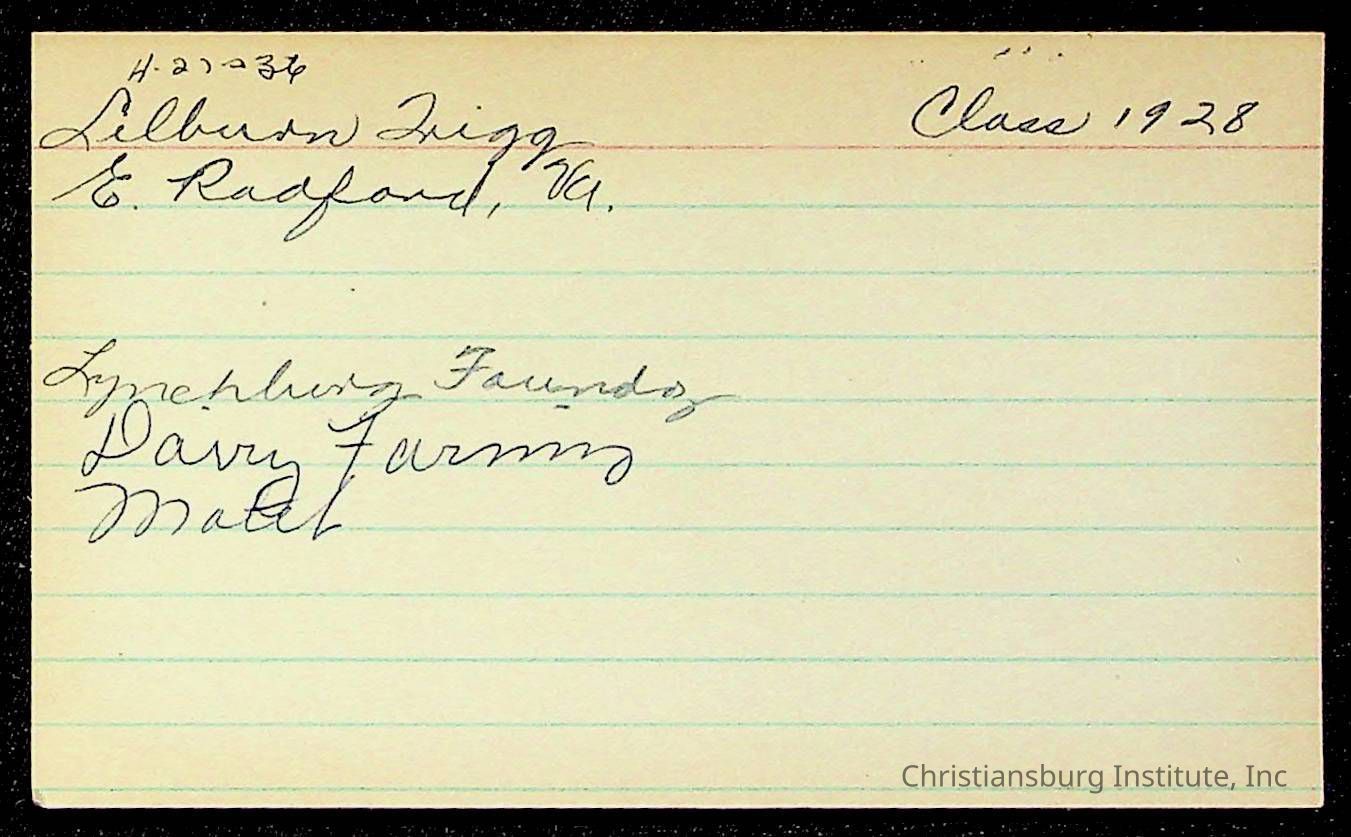 4-27-36
Lilburn Trigg
Class 1928
E. Radford, Va.
Lynchburg Foundry
Dairy Farming
Christiansburg Institute, Inc